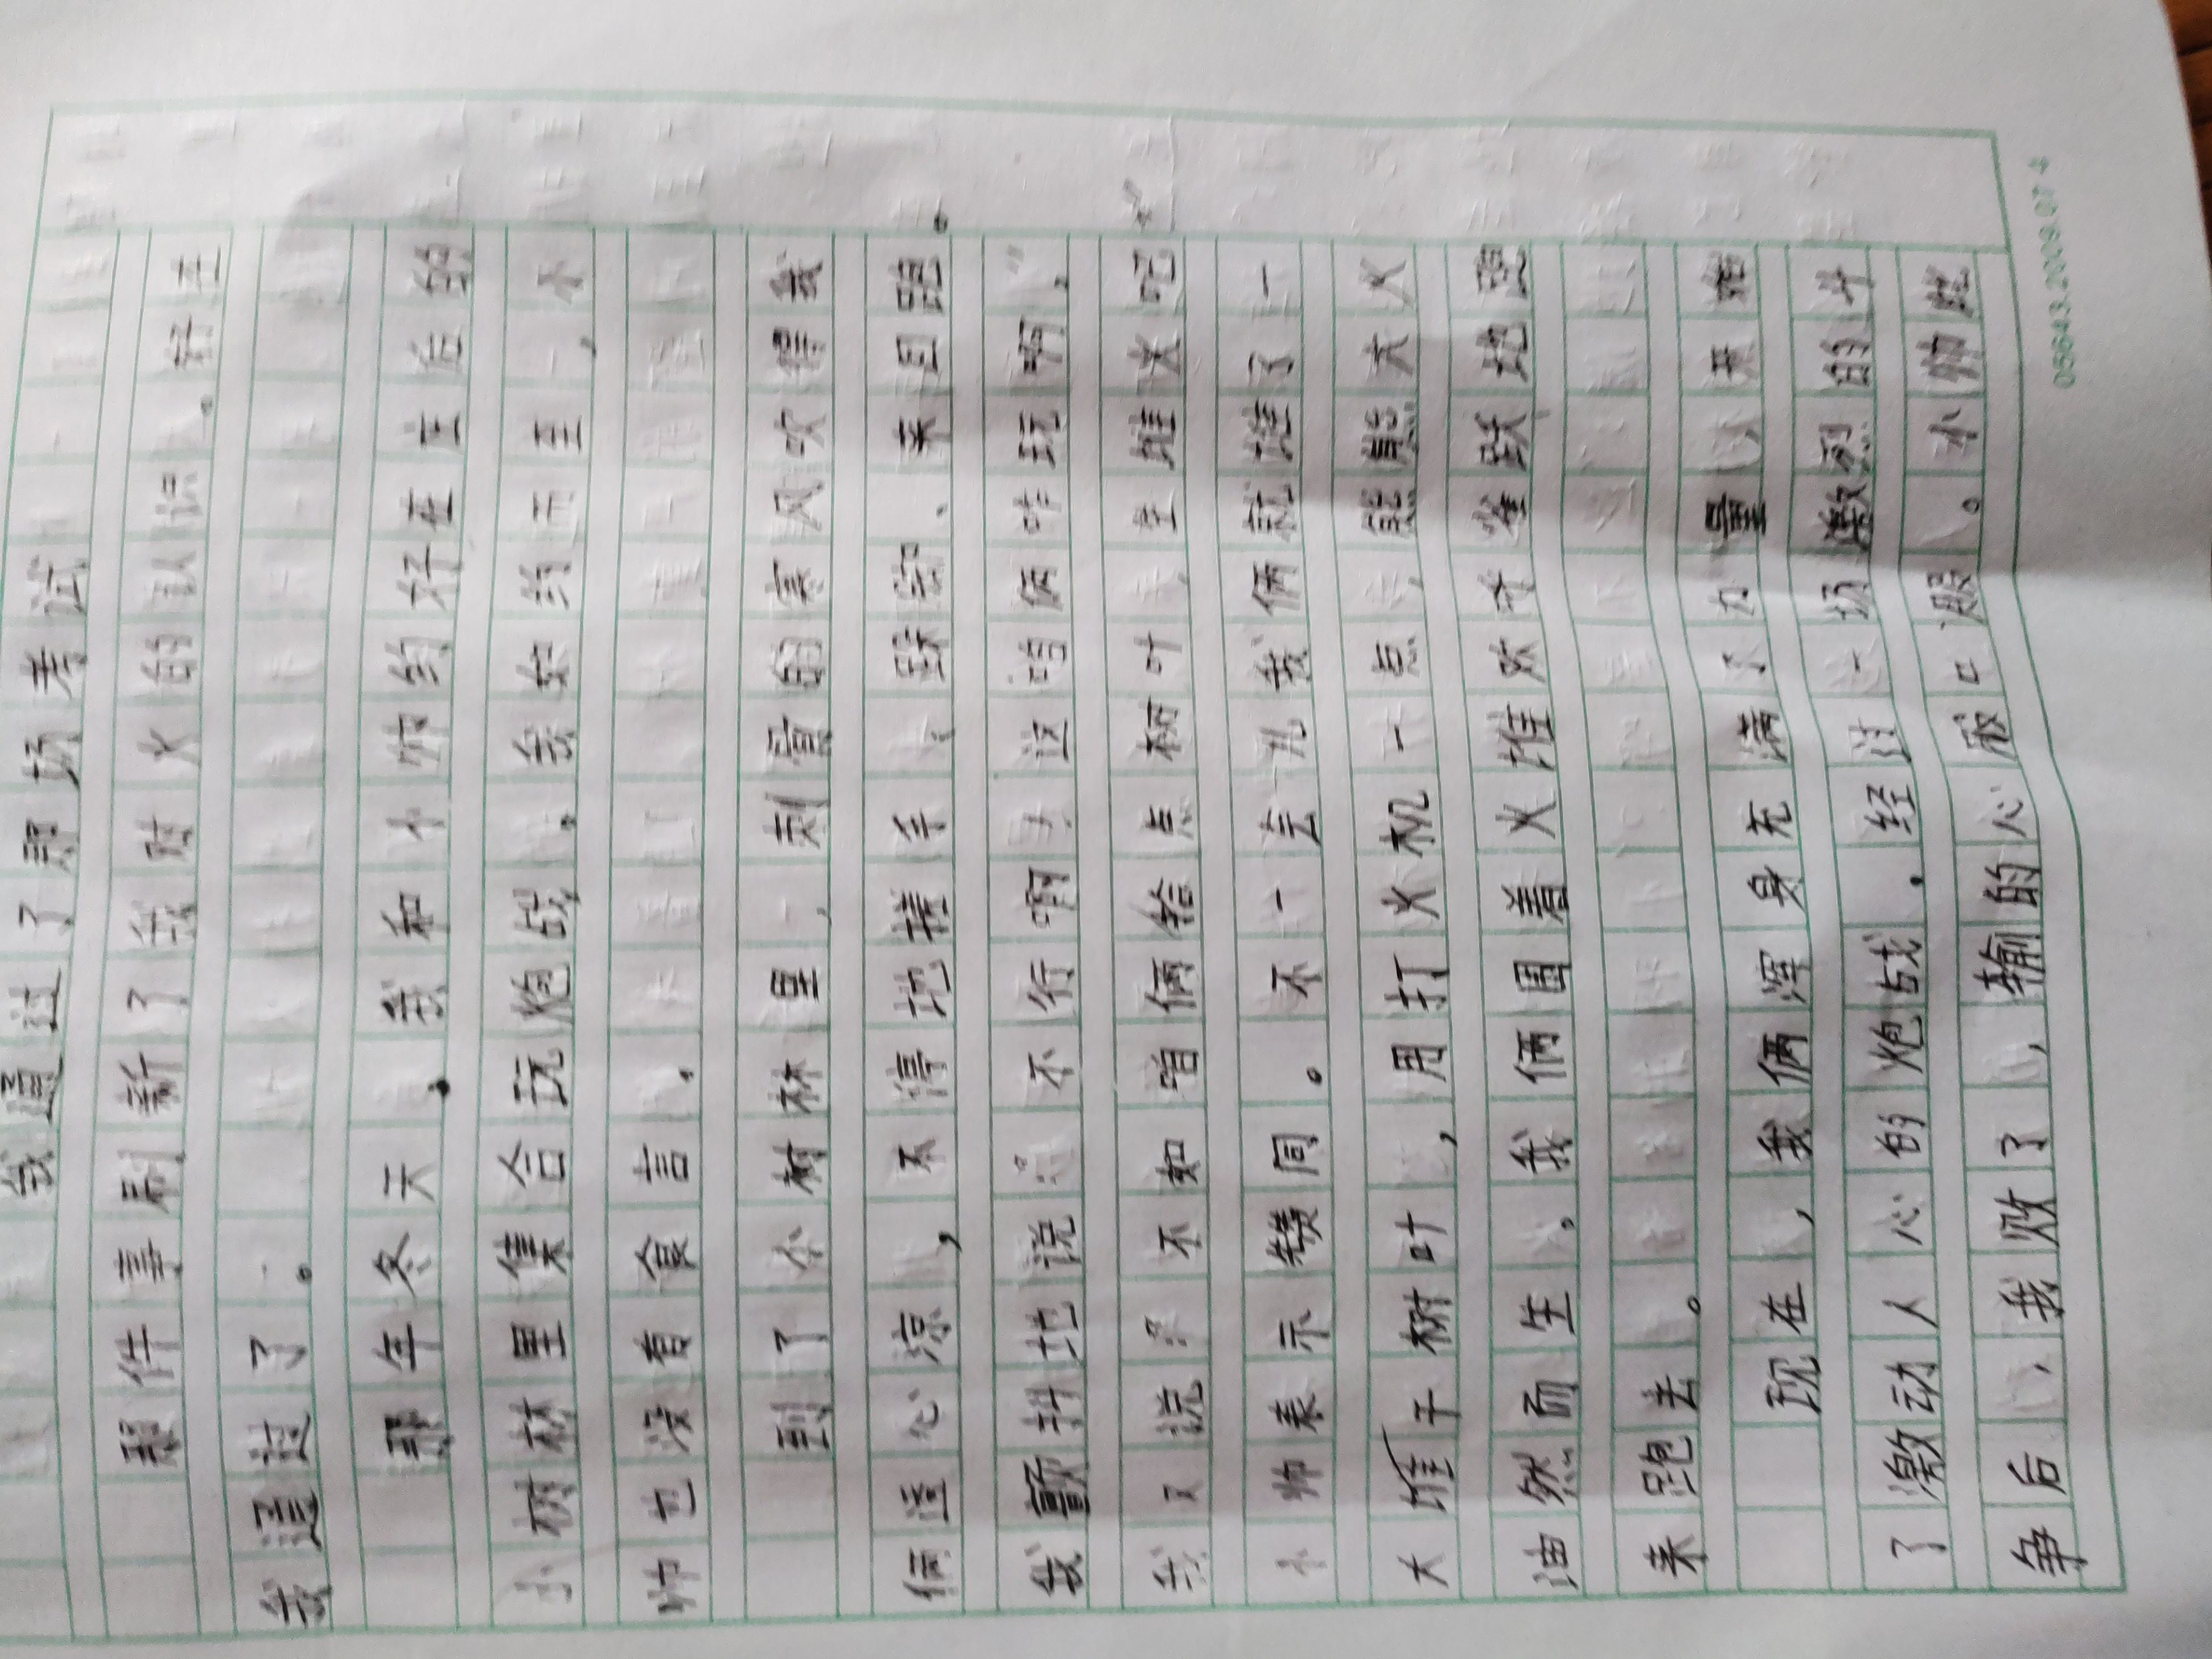 我通过了那场考试
那件事刷新了我对火的认识。好在
我通过了。
那年冬天。我和小帅约好在主后的
小树林里集合玩炮战。我如约而至,小
帅也没有食言。
到了小树林里,刺骨的寒风吹得我
俩透心凉,不停地搓手、跺脚、来回跑。
我颤抖地说:“不行啊,这咱俩咋玩啊”,
我又说:“不如咱俩拾点树叶生堆火吧”
小帅表示赞同。不一会儿我俩就堆了一
大堆干树叶,用打火机一点,熊熊大火
油然而生。我俩围着火堆欢呼雀跃地跑
来跑去。
现在,我俩浑身充满了力量,开始
了激动人心的炮战,经过一场激烈的斗
争后,我败了,输的心服口服。小帅
05643.2009.07 4